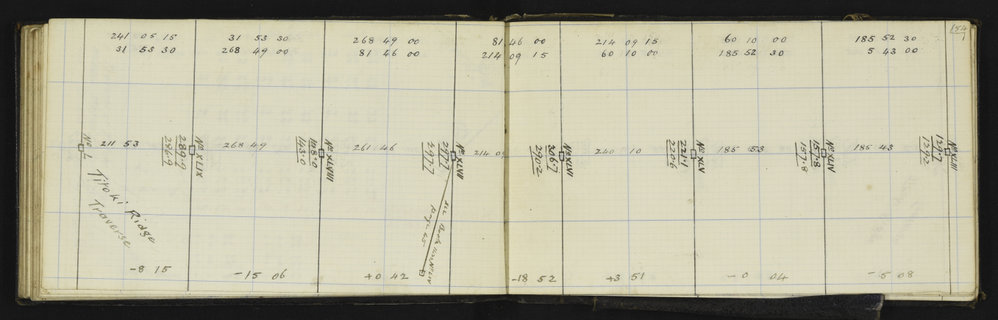 154
241 05 15 31 53 30 268 49 00 81 46 00 214 09 15 60 10 00 185 52 30
31 53 30 268 49 00 81 46 00 214 09 15 60 10 00 185 52 30 5 43 00
No L 211 53 No XLIX 268 49 No XLVIII 261 46 No XLVII 214 09 No XLVI 240 10 No XLV 185 53 No XLIV 185 43 No XLIII
289.9 148.0 297.7 306.7 221.6 157.8 129.7
286.9 143.0 297.7 290.2 220.6 157.8 129.2
Ridge
Traverse
-8 15 -15 06 +0 42 -18 52 +3 51 -0 04 -5 08